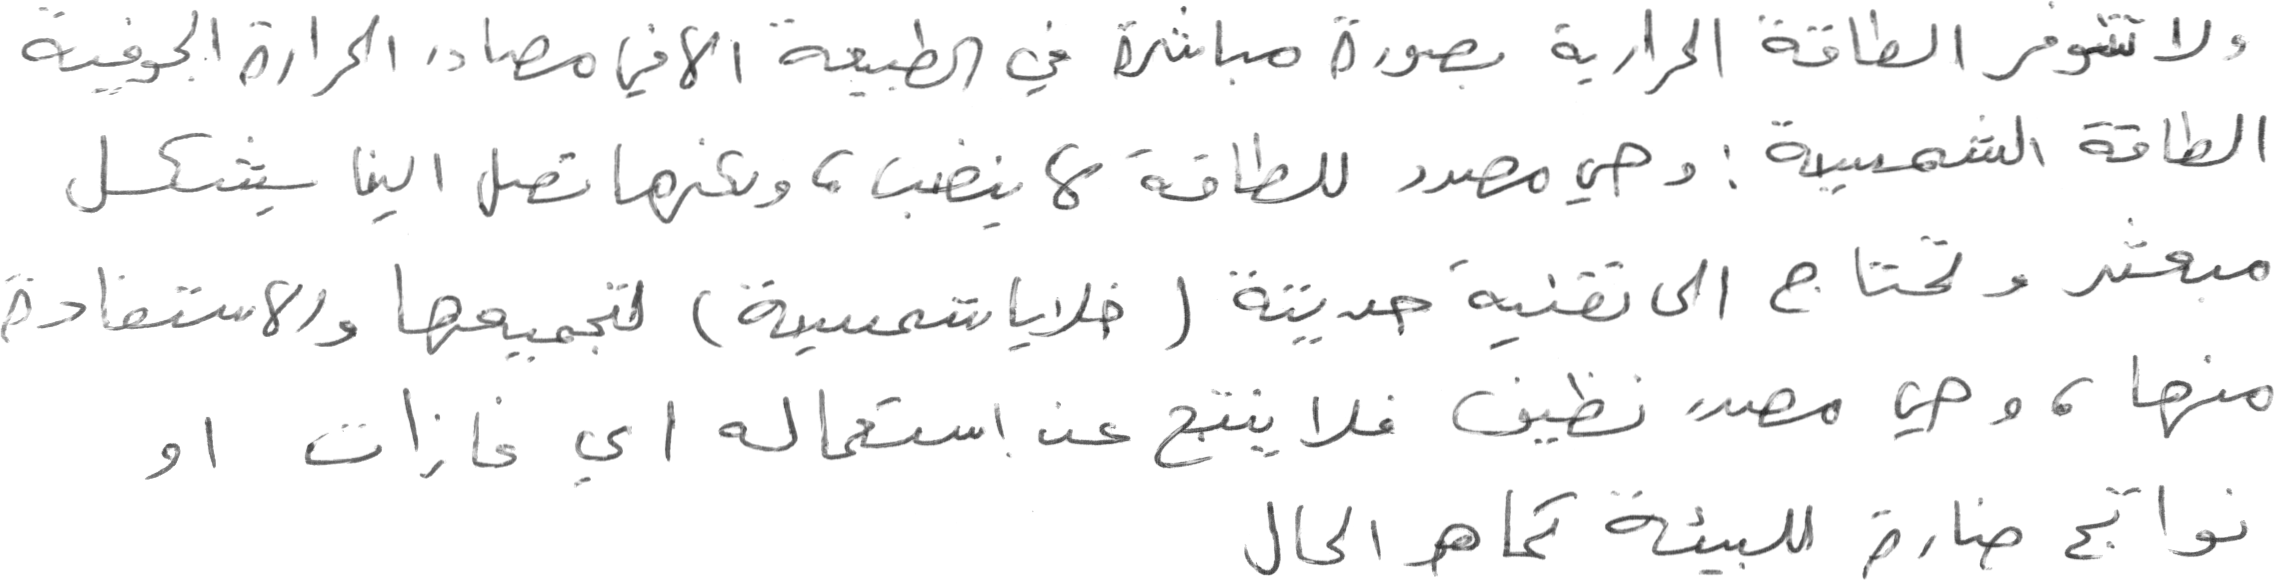 ولا تتوفر الطاقة الحرارية بصورة مباشرة في الطبيعة الا في مصادر الحرارة الجوفية
الطاقة الشمسية : وهي مصدر للطاقة لا ينضب ، ولكنها تصل الينا بشكل
مبعثر وتحتاج الى تقنية حديثة ( خلايا شمسية ) لتجميعها والاستفادة
منها ، وهي مصدر نظيف فلا ينتج عن إستعماله اي غازات او
نواتج ضارة للبيئة كما هو الحال